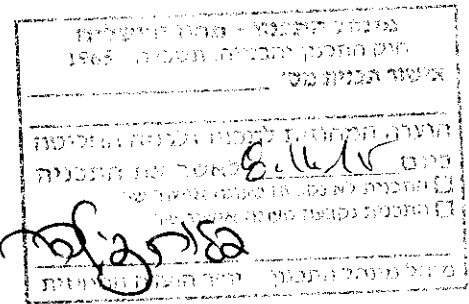 מינהל התכנון - מחוז ירושלים
חוק התכנון והבניה, תשכ"ה - 1965
אישור תכנית מס'
הועדה המחוזית לתכנון ולבניה החליטה
ביום לאשר את התכנית
התכנית לא נקבעה טעונה אישור שר
התכנית נקבעה טעונה אישור שר
מינהל התכנון יו"ר הועדה המחוזית